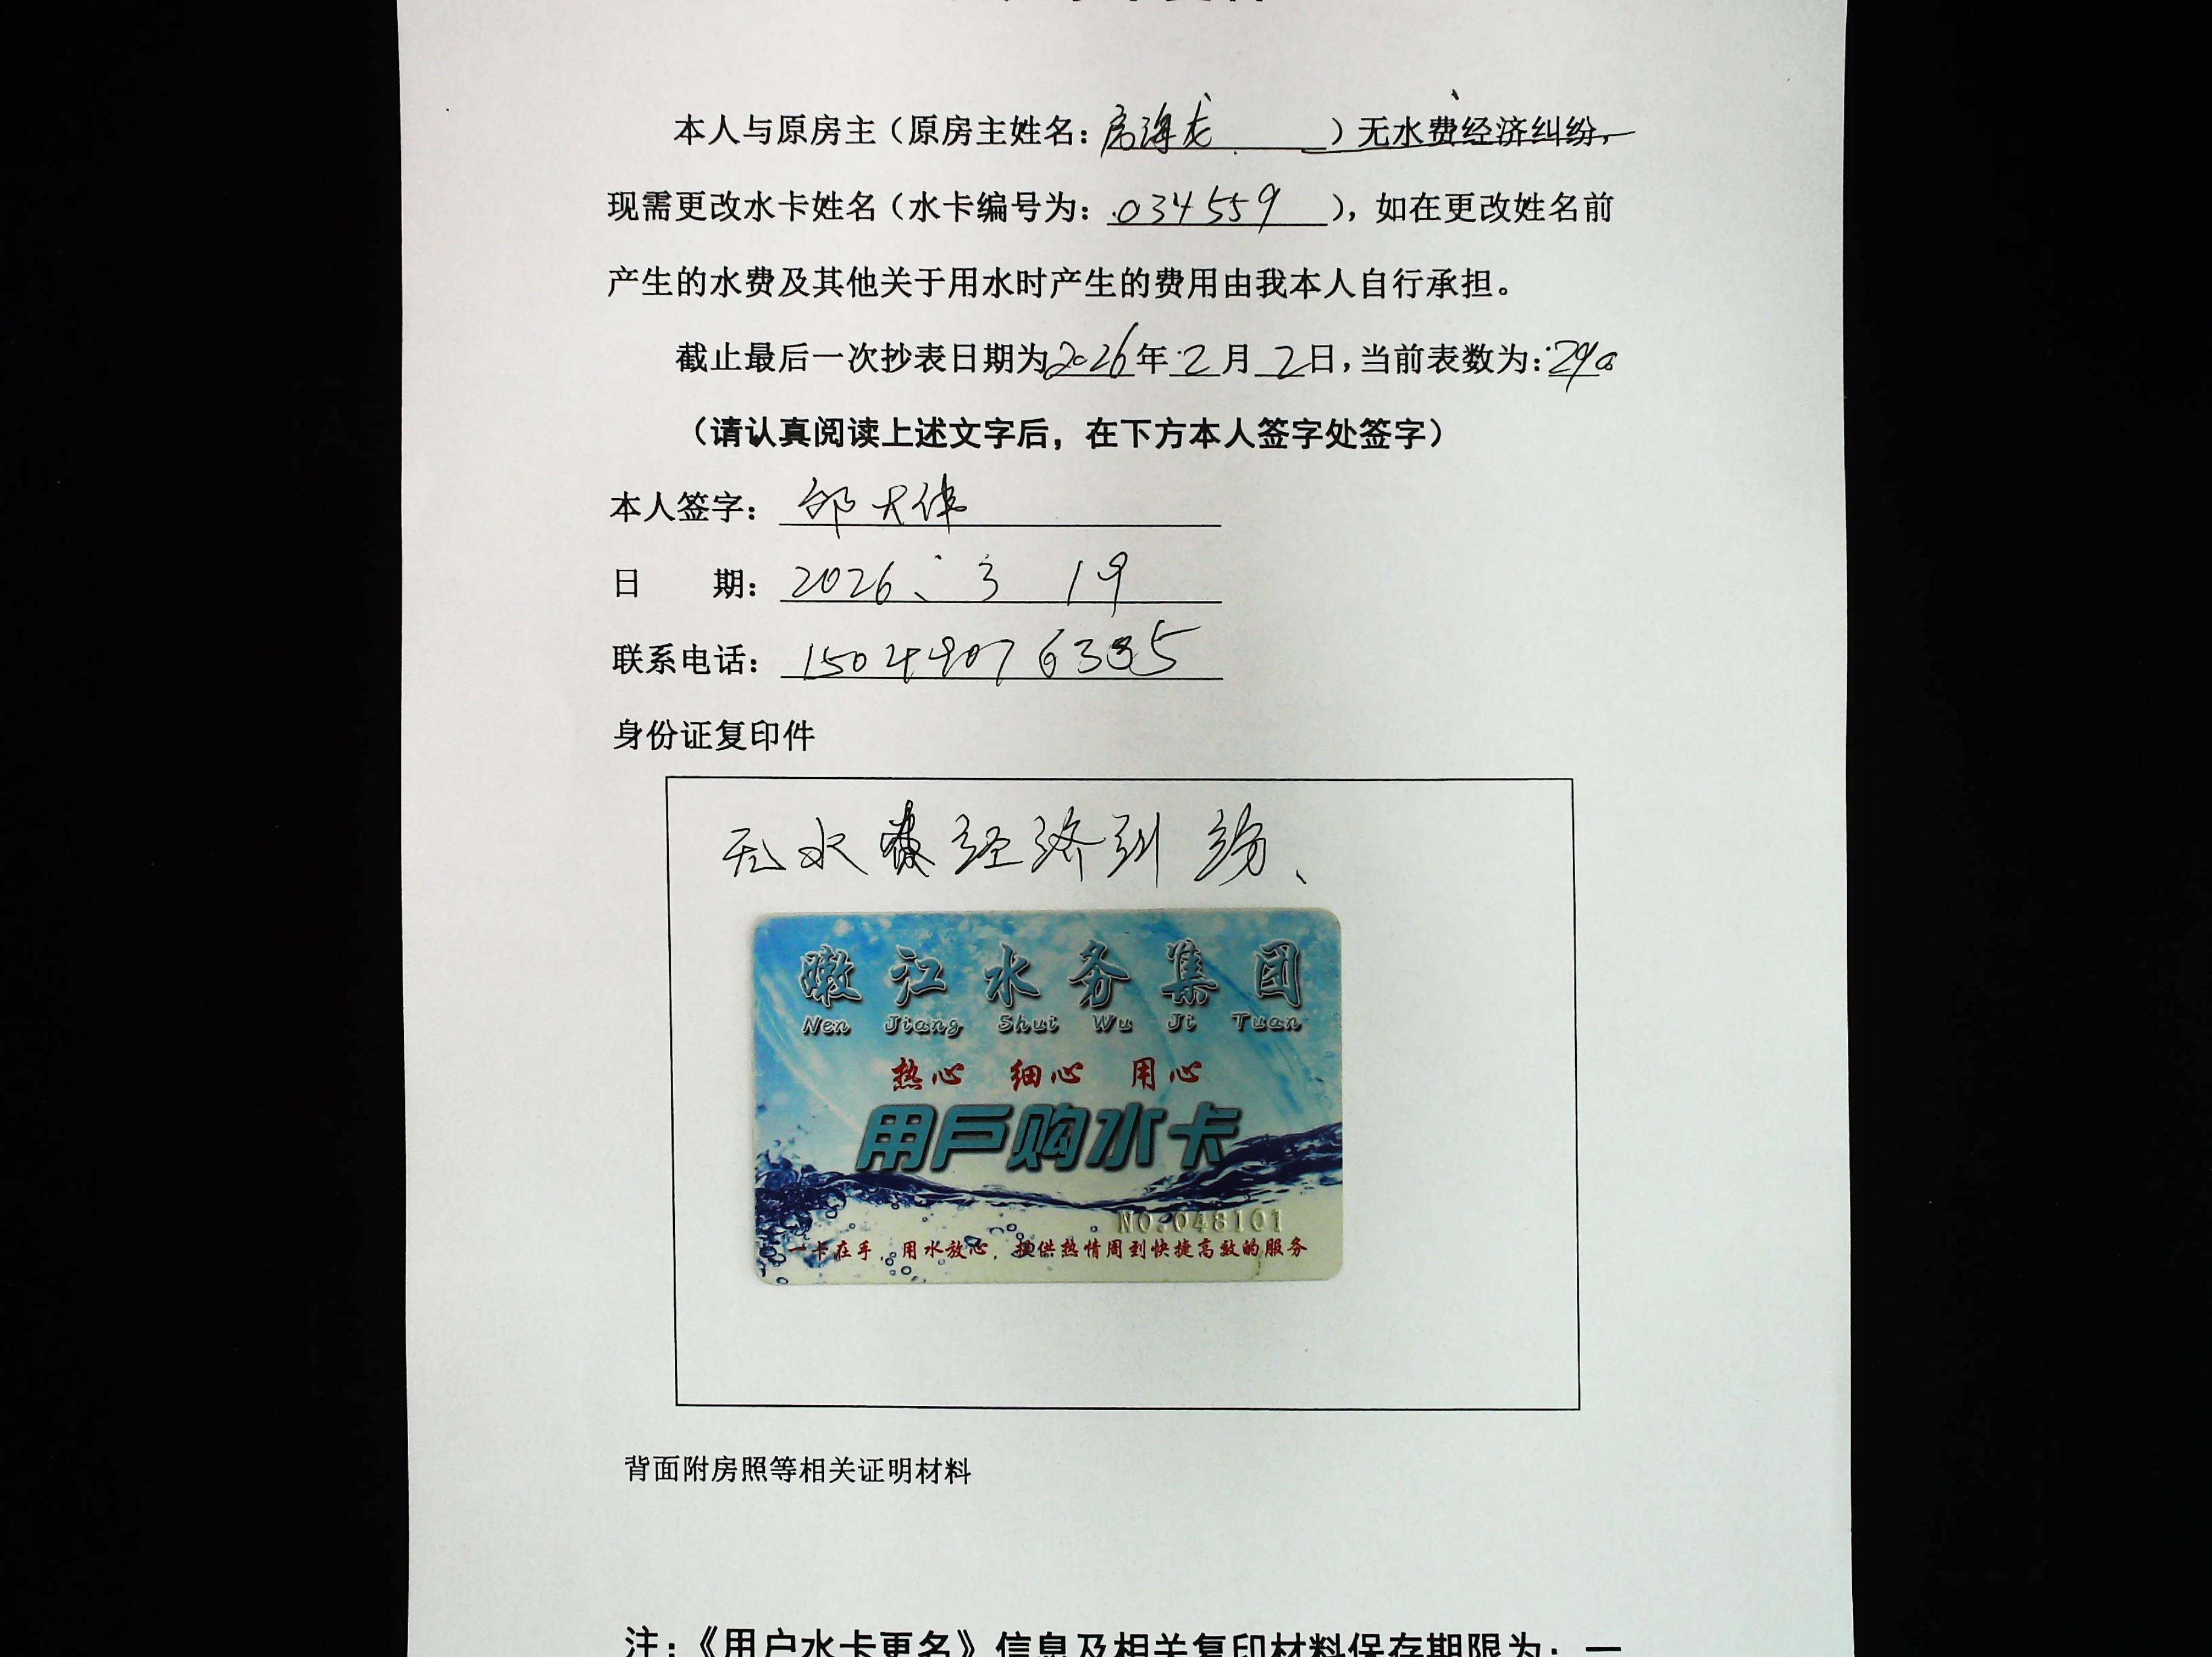 本人与原房主（原房主姓名：房海龙）无水费经济纠纷，
现需更改水卡姓名（水卡编号为：034559），如在更改姓名前
产生的水费及其他关于用水时产生的费用由我本人自行承担。
截止最后一次抄表日期为2026年2月2日，当前表数为：290
（请认真阅读上述文字后，在下方本人签字处签字）
本人签字：邰大伟
日 期：2026、3 19
联系电话：15049076335
身份证复印件
无水费经济纠纷、
嫩江水务集团
Nen Jiang Shui Wu Ji Tuan
热心 细心 用心
用户购水卡
NO:048101
一卡在手，用水放心，提供热情周到快捷高效的服务
背面附房照等相关证明材料
注：《用户水卡更名》信息及相关复印材料保存期限为：一